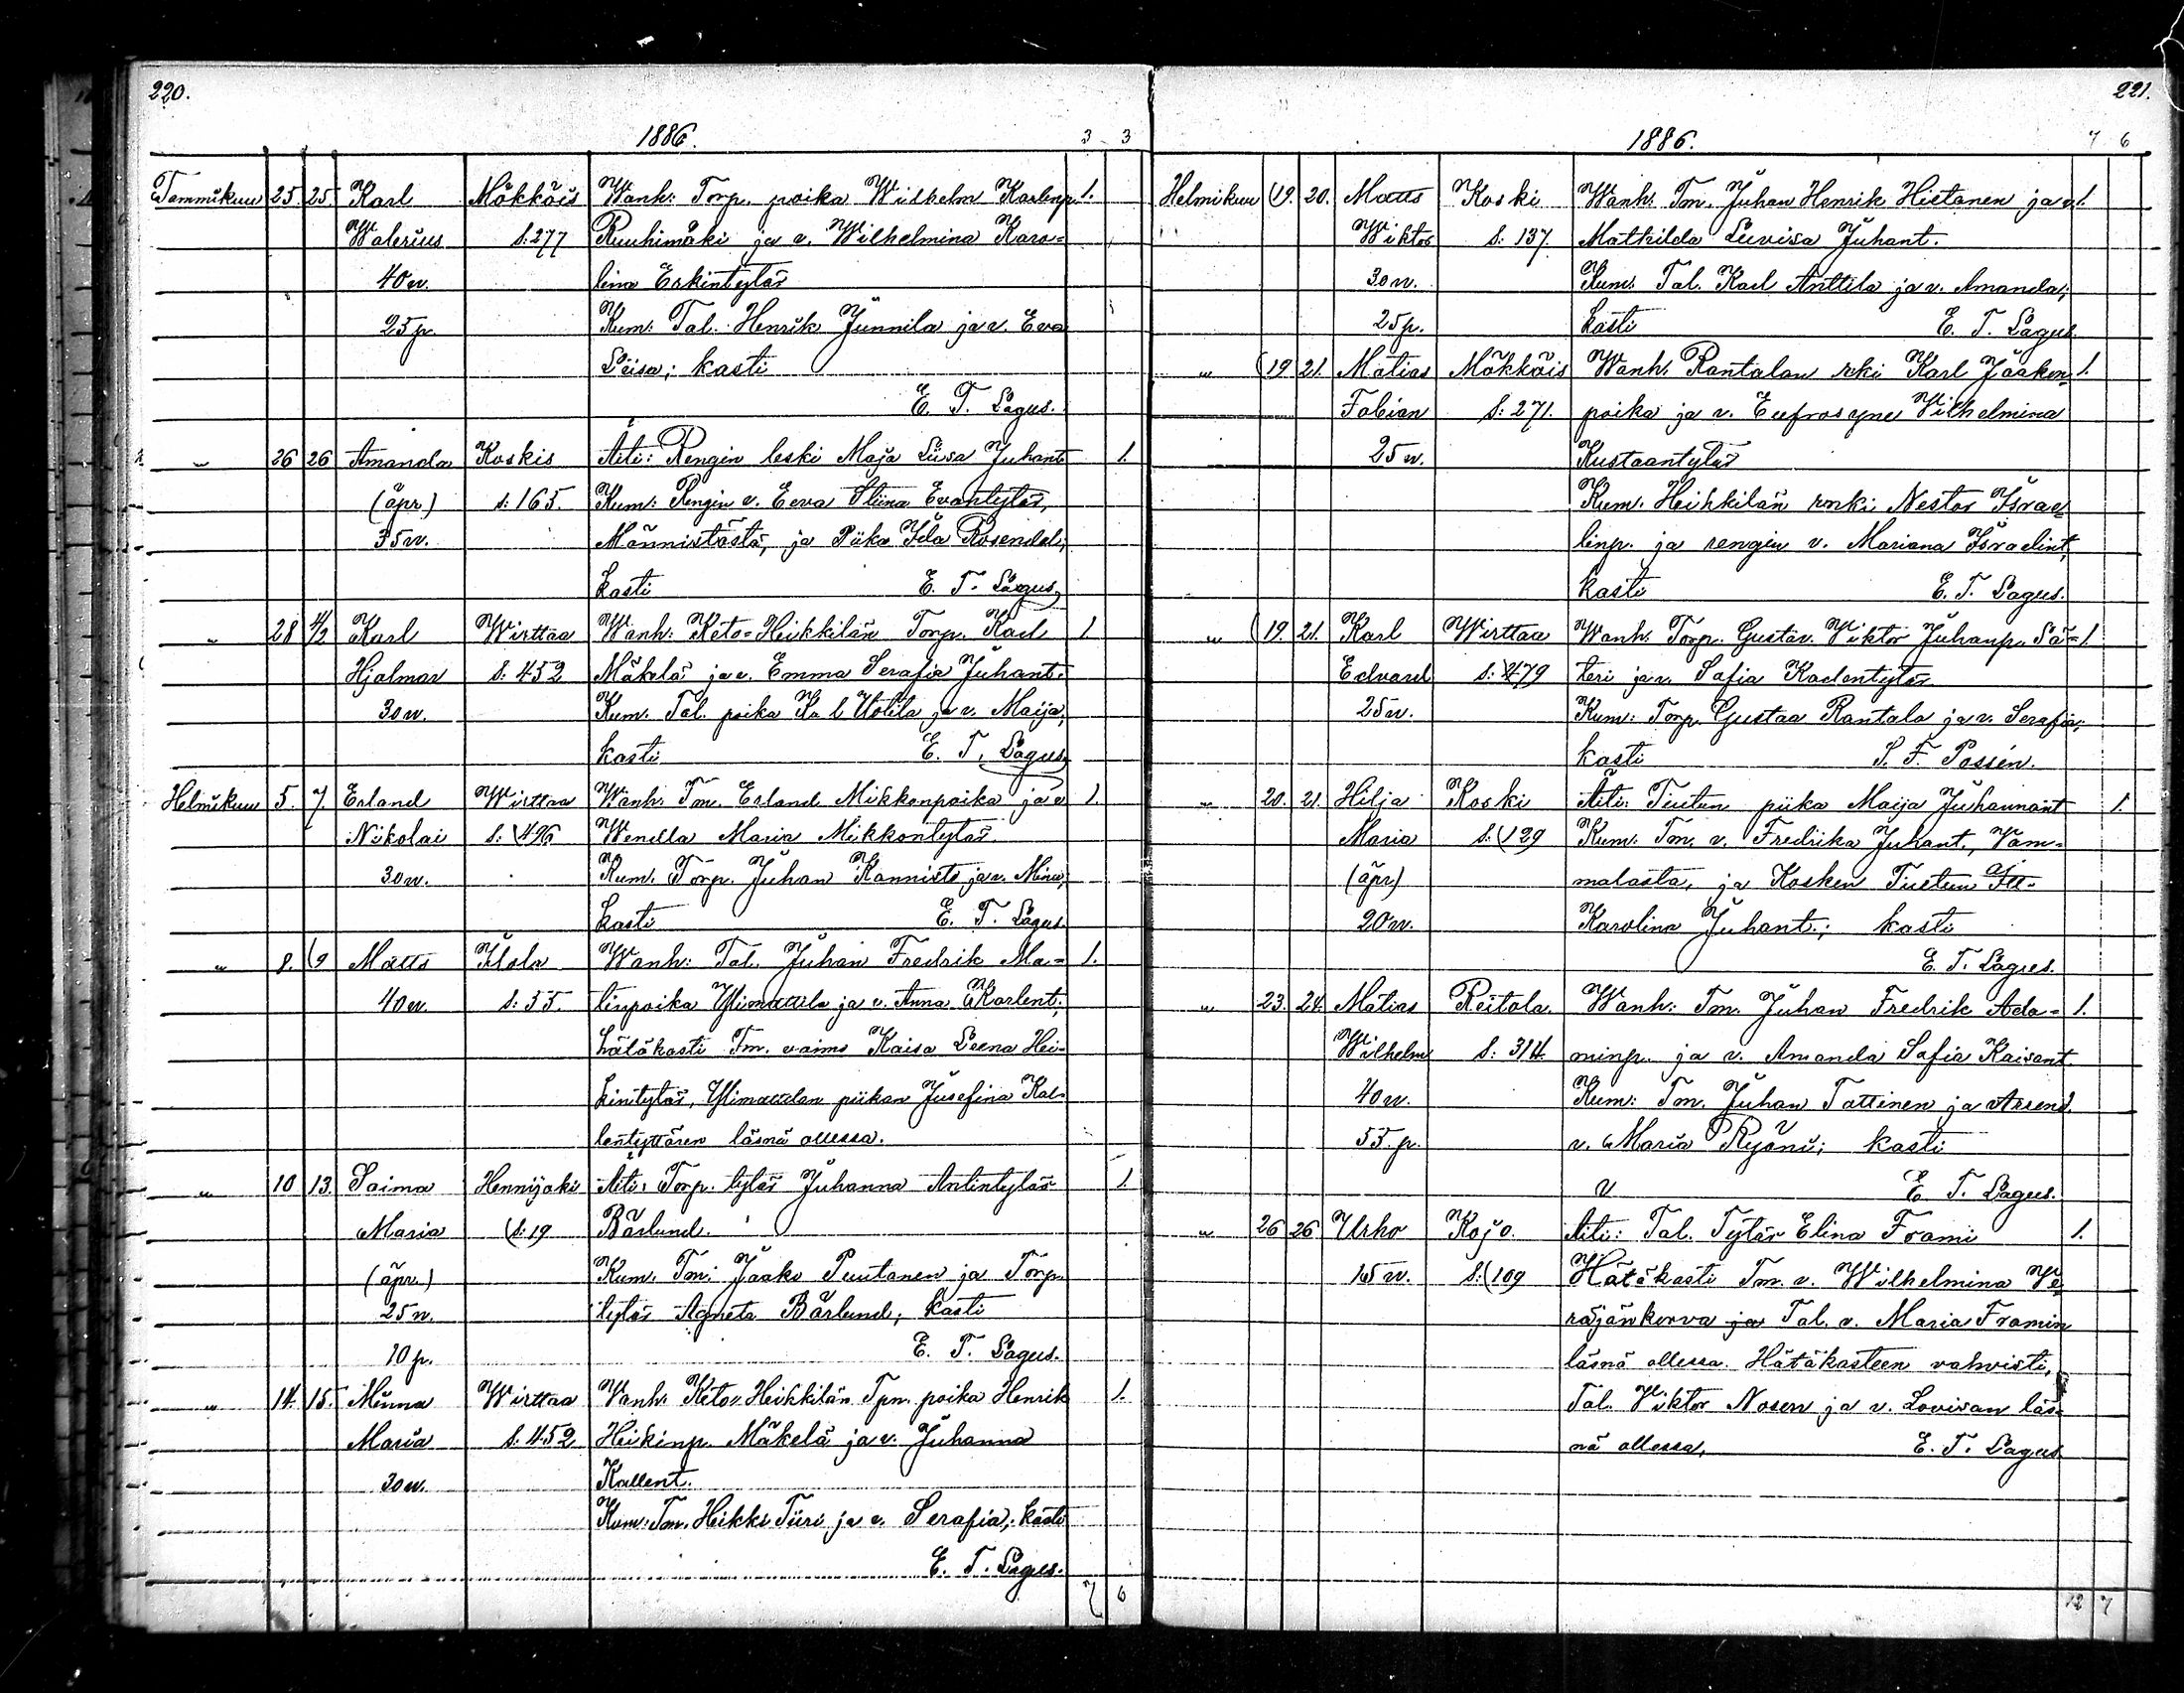 220.
1886. 3 3
Tammikuu 25. 25. Karl Mökköis Wanh: Torp. poika Wilhelm Karlenp. 1.
Walerius s. 277 Ruuhimäki ja v. Wilhelmina Karo=
40 w. lina Erkintytär
25 p. Kum: Tal. Henrik Junnila ja v. Eva
Liisa; kasti
E. T. Lagus.
" 26 26 Amanda Koskis Äiti: Rengin leski Maja Liisa Juhant. 1.
(äpr) s: 165. Kum: Rengin v. Eeva Stiina Evantytär,
35 w. Männistöstä, ja Piika Ida Rosendal;
kasti E. T. Lagus
" 28 4/2 Karl Wirttaa Wanh: Keto=Heikkilän Torp. Karl 1
Hjalmar s: 452 Mäkelä ja v. Emma Serafia Juhant.
30 w. Kum. Tal. poika Uotila ja v. Maija;
kasti E. T. Lagus
Helmikuu 5. 7. Erland Wirttaa Wanh. Tm. Erland Mikkonpoika ja v 1.
Nikolai s: 496 Wendla Maria Mikkontytär
30 w. Kum. Torp. Juhan Kannisto ja v. Mina;
kasti E. T. Lagus
" 8. 9 Matts Ilola Wanh: Tal. Juhan Fredrik Ma= 1.
40 w. s: 55. tinpoika Ylimattila ja v. Anna Karlent;
hätäkasti Tm. vaimo Kaisa Leena Hei=
kintytär, Ylimattilan piikan Josefina Kal=
lentyttären läsnä ollessa.
" 10 13. Saima Hennijoki Äiti: Torp. tytär Juhanna Antintytär 1
Maria s: 19 Bärlund.
(äpr.) Kum. Tm: Jaako Puutanen ja Torp.
25 w. tytär Agneta Bärlund; kasti
10 p. E. T. Lagus.
" 14. 15. Minna Wirttaa Wanh. Keto=Heikkilän Tpn. poika Henrik 1.
Maria s. 452 Heikinp. Mäkelä ja v. Juhanna
30 w. Kallent.
Kum: Tm. Heikki Tiiri ja v. Serafia; kasti
E. T. Lagus.
7 6
221.
1886. 7 6
Helmikuu 19. 20. Matts Koski Wanh. Tm. Juhan Henrik Hietanen ja v. 1.
Wiktor s: 137. Mathilda Luvisa Juhant.
30 w. Kum. Tal. Karl Anttila ja v. Amanda;
25 p. kasti E. T. Lagus.
" 19 21. Matias Mökköis Wanh. Rantalan rki Karl Jaakon= 1.
Fabian s: 271. poika ja v. Eufrosyne Vilhelmina
25 w. Kustaantytär
Kum. Heikkilän renki Nestor Israe=
linp. ja rengin v. Mariana Israelint;
kasti E. T. Lagus.
" 19. 21. Karl Wirttaa Wanh. Torp. Gustav Viktor Juhanp. Sä= 1.
Edvard s: 479 teri ja v. Safia Kaclentytär
25 w. Kum: Torp. Gustaa Rantala ja v. Serafia;
kasti S. F. Possén.
" 20. 21. Hilja Koski Äiti: Tuutun piika Maija Juhannant 1.
Maria s: 129 Kum: Tm. v. Fredrika Juhant., Vam=
(äpr) malasta, ja Kosken Tuutun
20 w. Karolina Juhant.; kasti
E. T. Lagus.
" 23. 24. Matias Reitala. Wanh: Tm. Juhan Fredrik Ada= 1.
Wilhelm s: 314. minp. ja v. Amanda Safia Kaisant.
40 w. Kum: Tm. Juhan Tattinen ja
55. p. v. Maria Ryönä; kasti
E. T. Lagus.
" 26 26 Urho Kojo. Äiti: Tal. Tytär Elina Frami 1.
15 w. s: 109 Hätäkasti Tm. v. Wilhelmina Ve=
räjänkorva ja Tal. v. Maria Framin
läsnä ollessa. Hätäkasteen vahvisti,
Tal. Viktor Nosen ja v. Lovisan läs=
nä ollessa, E. T. Lagus.
12 7